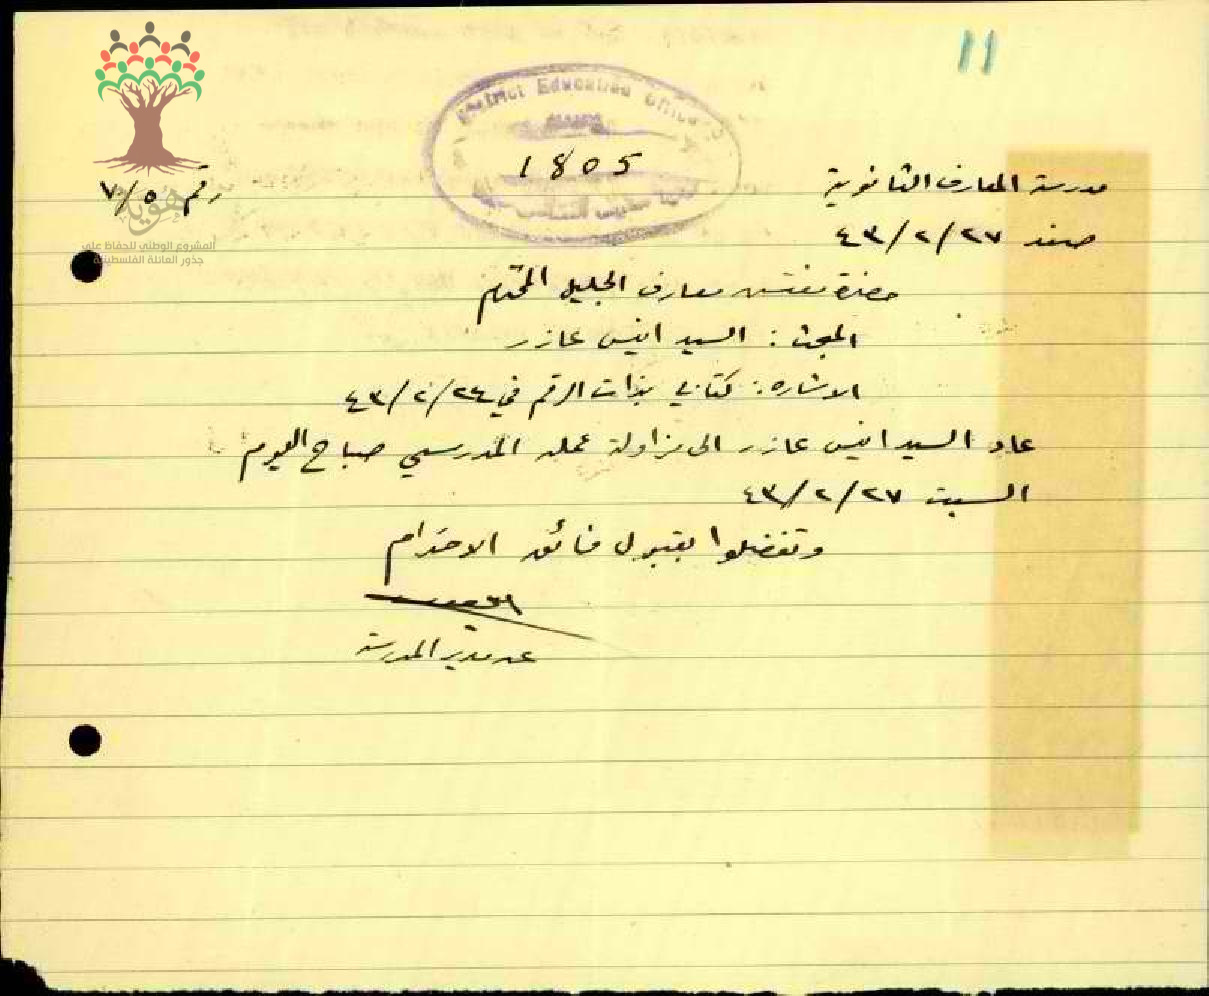 11
District Education Office
1805
مدرسة المعارف الثانوية
رقم ٧/٥
صفد ٤٣/٢/٢٧
هوية
المشروع الوطني للحفاظ على
جذور العائلة الفلسطينية
حضرة مفتش معارف الجليل المحترم
المبحث : السيد انيس عازر
الاشارة : كتابي بذات الرقم في ٤٣/٢/٢٤
عاد السيد انيس عازر الى مزاولة عمله المدرسي صباح اليوم
السبت ٤٣/٢/٢٧
وتفضلوا بقبول فائق الاحترام
عن مدير المدرسة